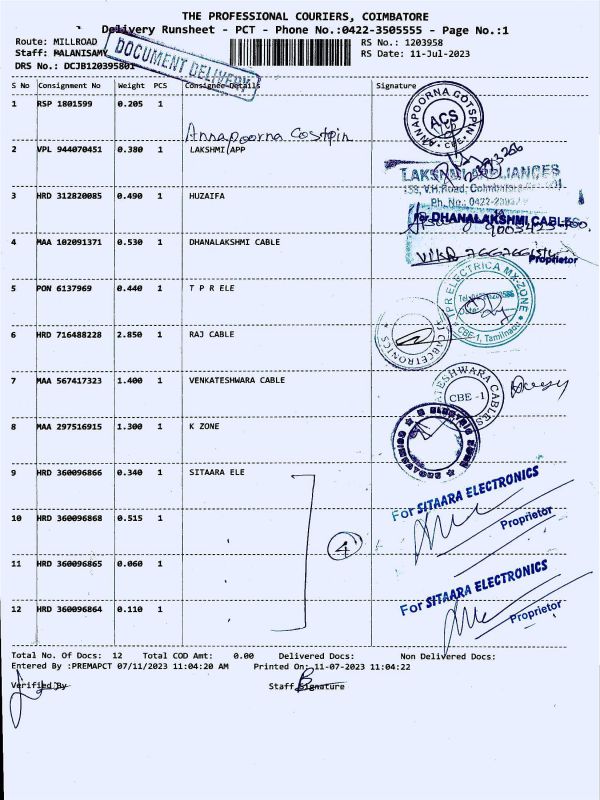 THE PROFESSIONAL COURIERS, COIMBATORE
Delivery Runsheet - PCT - Phone No.:0422-3505555 - Page No.:1
Route: MILLROAD RS No.: 1203958
Staff: MALANISAMY RS Date: 11-Jul-2023
DRS No.: DCJB120395801
DOCUMENT DELIVERY
S No Consignment No Weight PCS Consignee Details Signature
1 RSP 1801599 0.205 1
Annapoorna Costpin
ANNAPOORNA COTSPIN
ACS
CBE
2 VPL 944070451 0.380 1 LAKSHMI APP
LAKSHMI APPLIANCES
3 HRD 312820085 0.490 1 HUZAIFA
DHANALAKSHMI CABLES
4 MAA 102091371 0.530 1 DHANALAKSHMI CABLE
Proprietor
5 PON 6137969 0.440 1 T P R ELE
TPR ELECTRICA MY-ZONE
CBE-1, Tamilnadu
6 HRD 716488228 2.850 1 RAJ CABLE
7 MAA 567417323 1.400 1 VENKATESHWARA CABLE
CBE -1
8 MAA 297516915 1.300 1 K ZONE
9 HRD 360096866 0.340 1 SITAARA ELE
For SITAARA ELECTRONICS
Proprietor
10 HRD 360096868 0.515 1
4
11 HRD 360096865 0.060 1
For SITAARA ELECTRONICS
Proprietor
12 HRD 360096864 0.110 1
Total No. Of Docs: 12 Total COD Amt: 0.00 Delivered Docs: Non Delivered Docs:
Entered By :PREMAPCT 07/11/2023 11:04:20 AM Printed On: 11-07-2023 11:04:22
Verified By Staff Signature